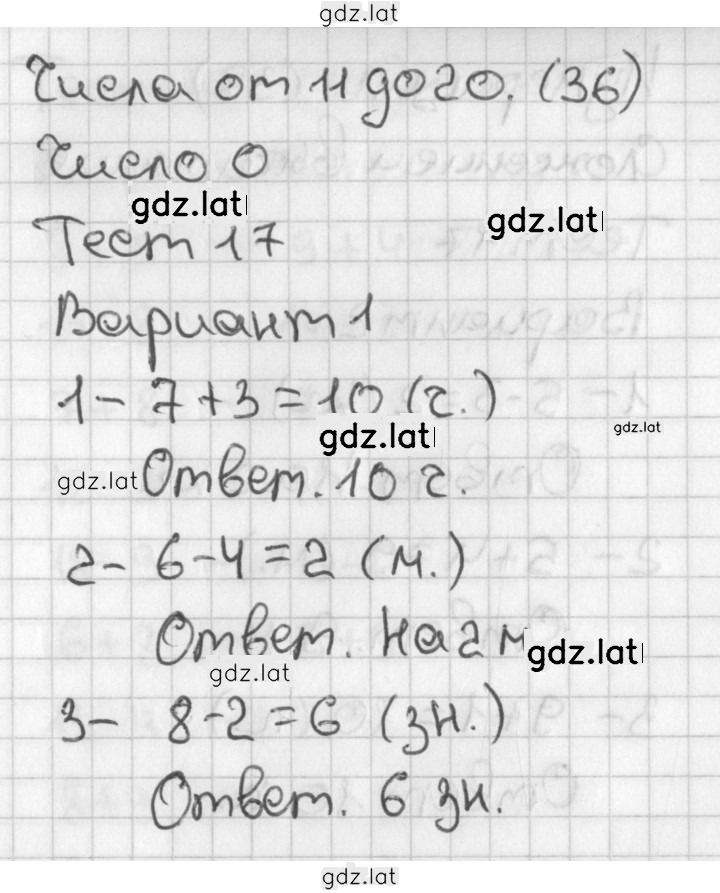 gdz.lat
Числа от 11 до 20. (36)
Число 0
gdz.lat
gdz.lat
Тест 17
Вариант 1
1- 7+3=10 (г.)
gdz.lat
gdz.lat
gdz.lat Ответ. 10 г.
2- 6-4=2 (м.)
Ответ. На 2 м
gdz.lat
gdz.lat
3- 8-2=6 (зн.)
Ответ. 6 зн.
gdz.lat